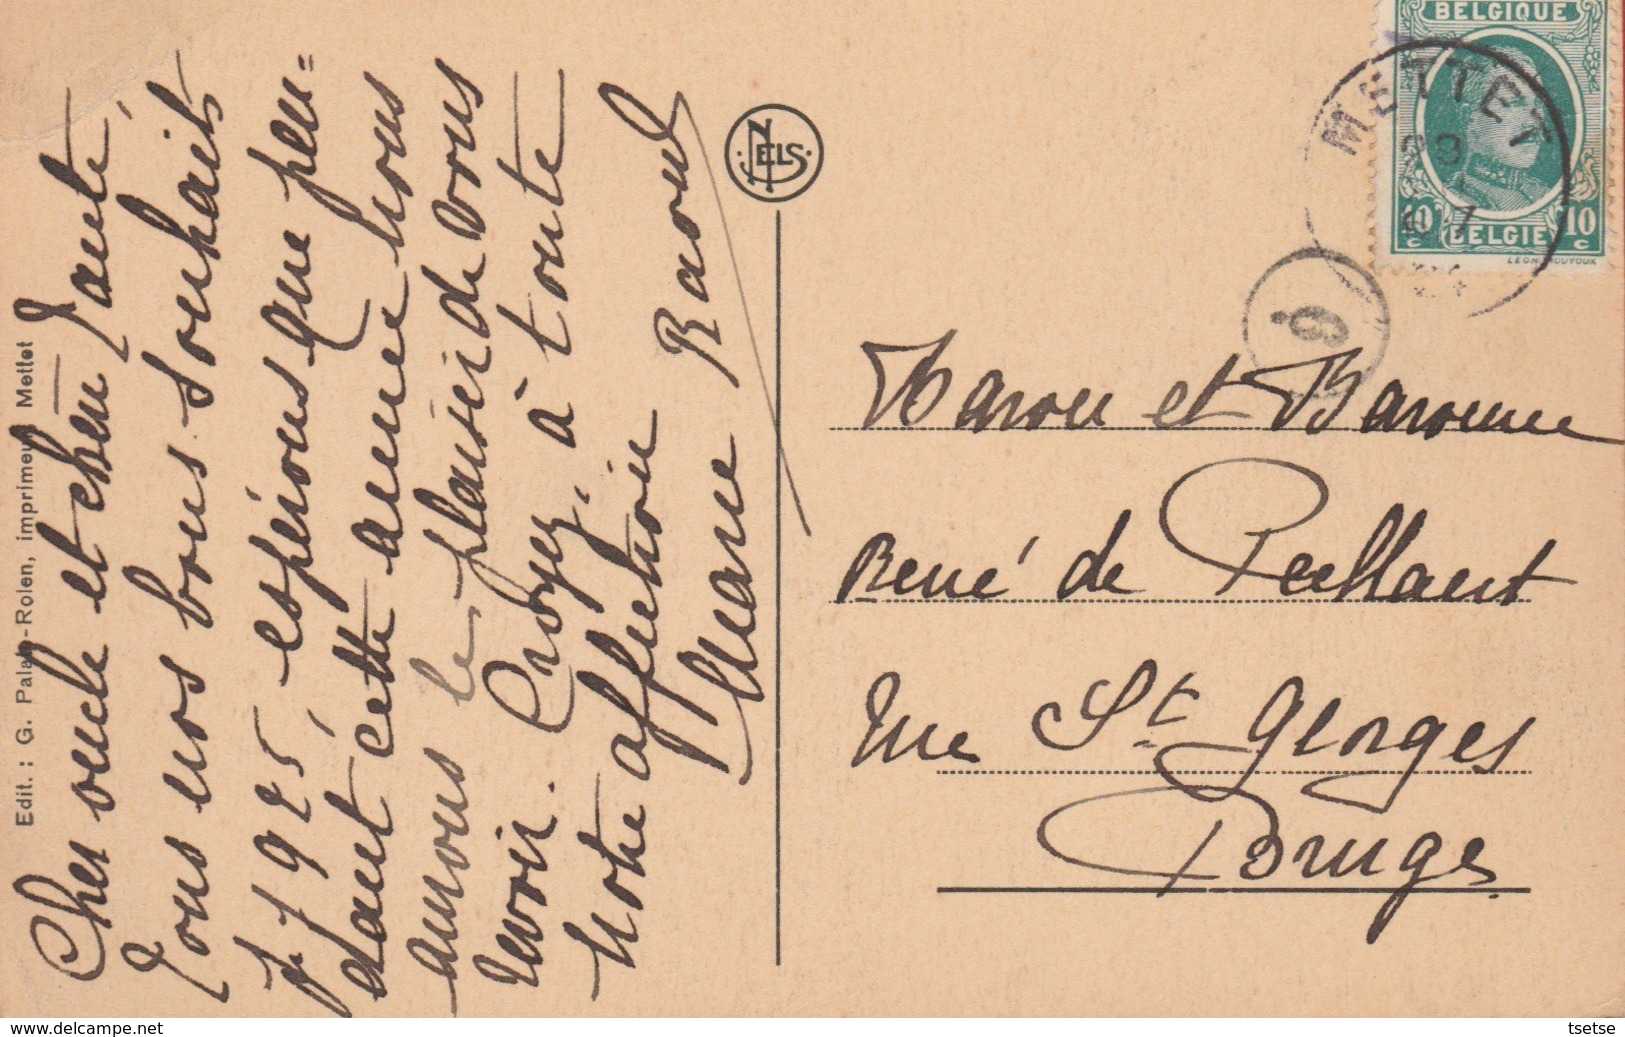 Edit. : G. Palate-Rolen, imprimeur Mettet
Cher oncle et chère Tante,
Tous nos bons souhaits
p. 1925 espérons que pen=
dant cette année nous
aurons le plaisir de vous
revoir. Croyez, à toute
notre affection
Marie Raoul
NELS
BELGIQUE
METTET
10 c
10 c
BELGIE
9
Baron et Baronne
René de Pellaert
rue St. Georges
Bruges
www.delcampe.net
tsetse